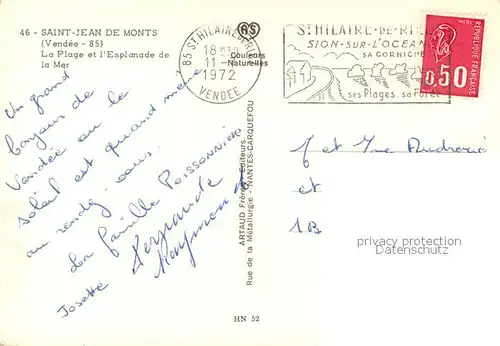 46 - SAINT-JEAN DE MONTS
(Vendée - 85)
La Plage et l'Esplanade de
la Mer
AS
Couleurs
Naturelles
85 ST HILAIRE DE RIEZ
18 H
11-
1972
VENDEE
ST HILAIRE-DE-RIEZ
SION-SUR-L'OCEAN
SA CORNICHE
ses Plages. sa Forêt
0,50
REPUBLIQUE FRANÇAISE
Un grand
bonjour de
Vendée ou le
soleil est quand même
au rendez-vous.
La famille POISSONNIER
Fernande
Raymond
Josette
ARTAUD Frères Editeurs
Rue de la Métallurgie - NANTES-CARQUEFOU
et
1B
privacy protection
Datenschutz
HN 52